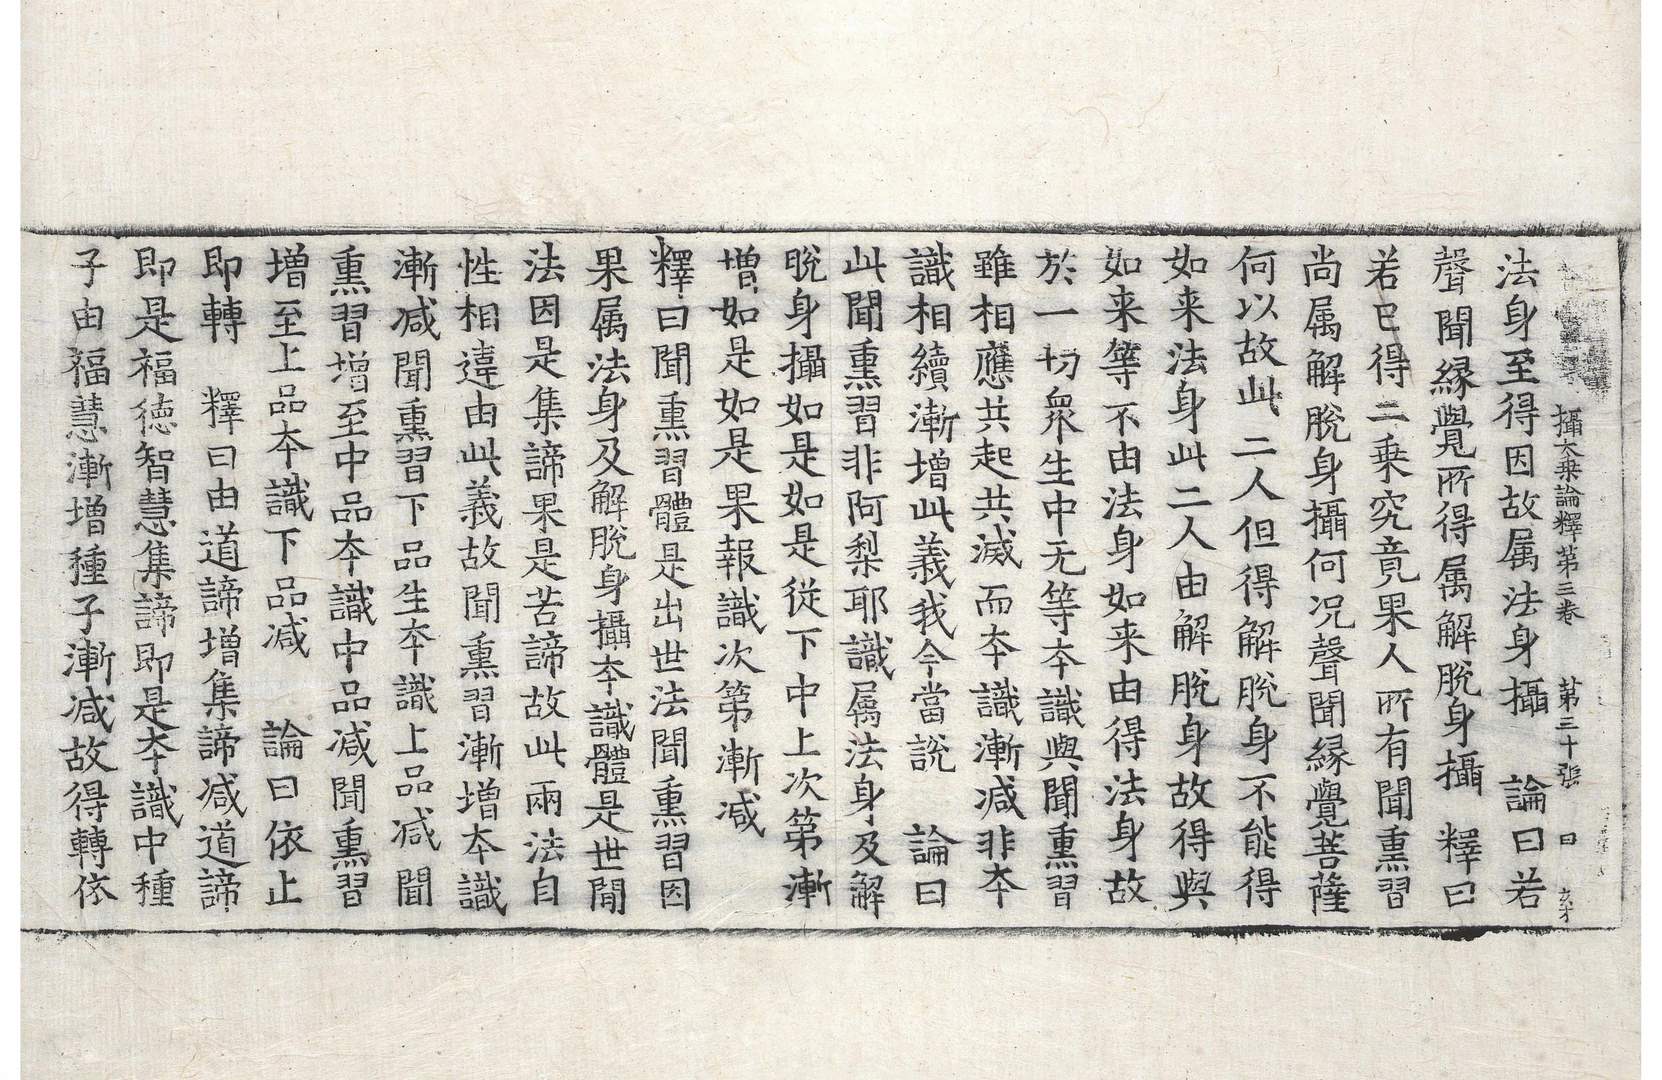 攝大乘論釋第三卷　第三十張　曰
法身至得因故属法身攝　論曰若
聲聞緣覺所得属解脫身攝　釋曰
若已得二乘究竟果人所有聞熏習
尚属解脫身攝何況聲聞緣覺菩薩
何以故此二人但得解脫身不能得
如来法身此二人由解脫身故得與
如来等不由法身如来由得法身故
於一切衆生中无等夲識與聞熏習
雖相應共起共滅而夲識漸减非夲
識相續漸增此義我今當說　論曰
此聞熏習非阿梨耶識属法身及解
脫身攝如是如是從下中上次第漸
增如是如是果報識次第漸减
釋曰聞熏習體是出世法聞熏習因
果属法身及解脫身攝夲識體是世間
法因是集諦果是苦諦故此兩法自
性相違由此義故聞熏習漸增夲識
漸减聞熏習下品生夲識上品减聞
熏習增至中品夲識中品减聞熏習
增至上品夲識下品减　論曰依止
即轉　釋曰由道諦增集諦减道諦
即是福德智慧集諦即是夲識中種
子由福慧漸增種子漸减故得轉依